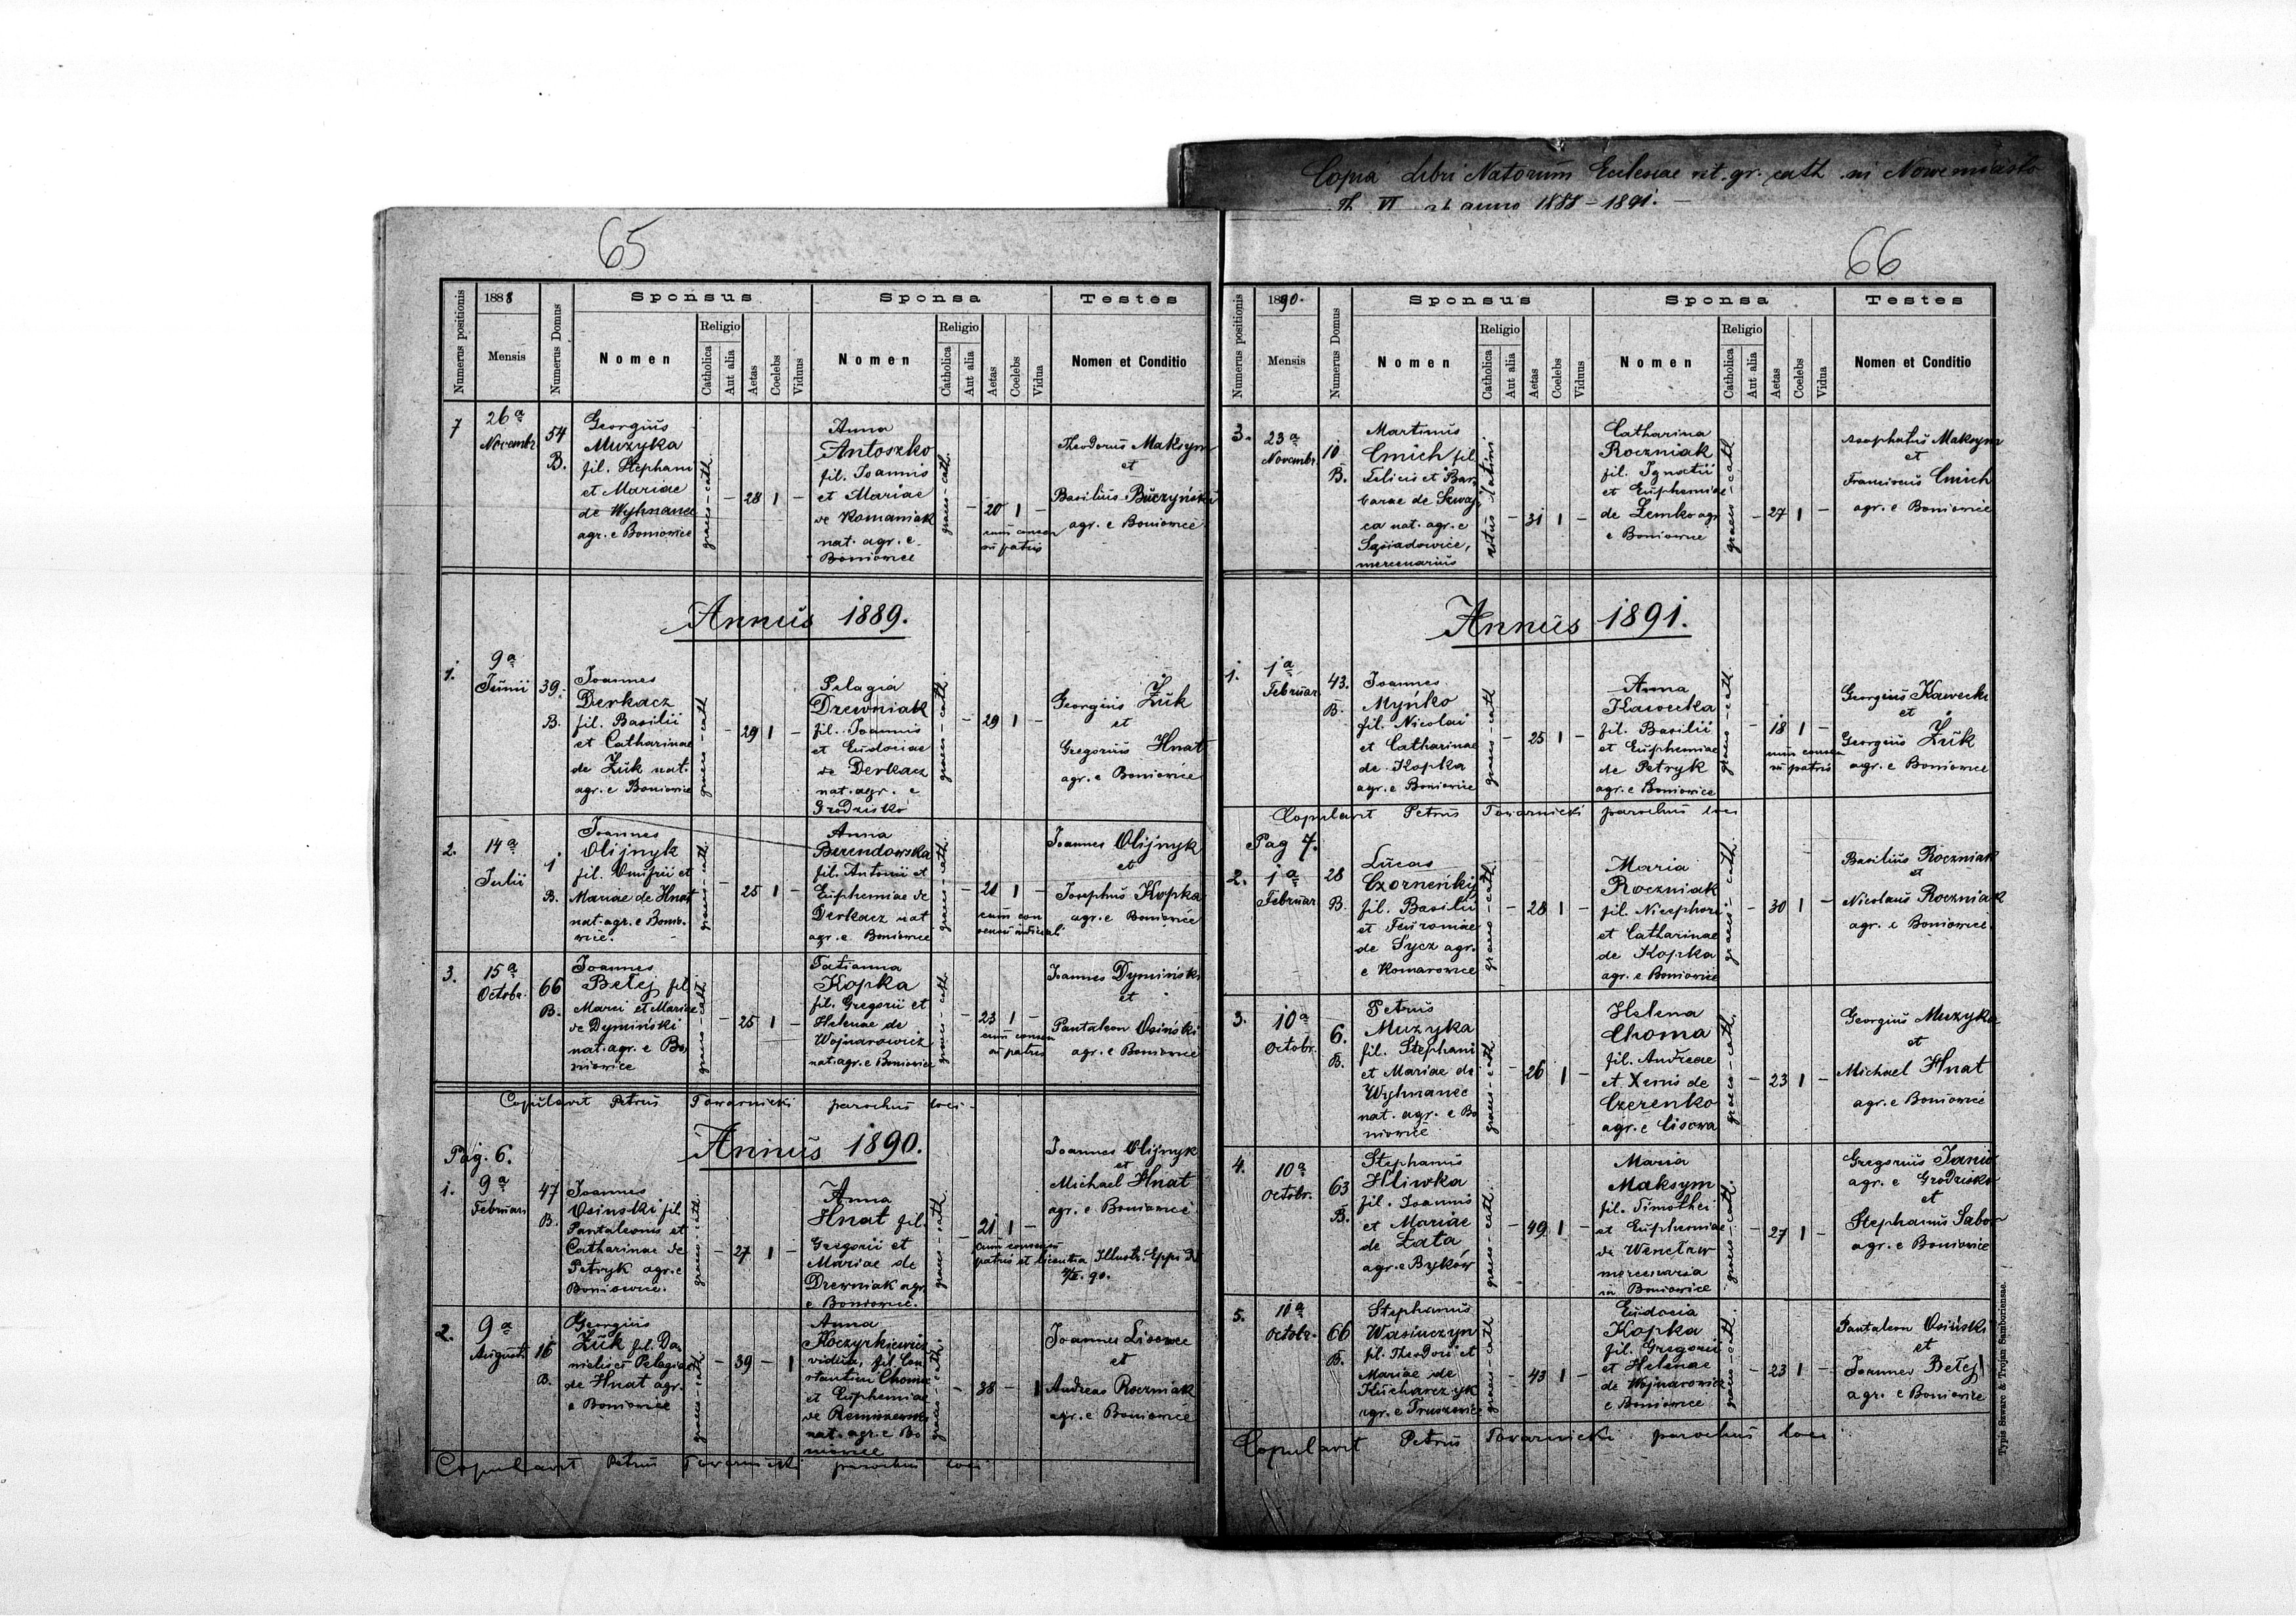 Copia Libri Natorum Ecclesiae rit. gr. cath in Nowemiasto
Th. VI ab anno 1888 – 1891. –
65
Numerus positionis
1888
Mensis
Numerus Domus
Sponsus
Nomen
Religio
Catholica
Aut alia
Aetas
Coelebs
Viduus
Sponsa
Nomen
Religio
Catholica
Aut alia
Aetas
Coelebs
Vidua
Testes
Nomen et Conditio
7
26a
Novembr
54
B.
Georgius
Muzyka
fil. Stephani
et Mariae
de Wyhnanec
agr. e Boniowice
graeco-cath.
– 28 1 –
Anna
Antoszko
fil. Joannis
et Mariae
de Romaniak
nat. agr. e
Boniowice
graeco-cath.
– 20 1 –
cum consen
su patris
Theodorus Maksym
et
Basilius Buczyński
agr. e Boniowice
Annus 1889.
1.
9a
Junii
39.
B.
Joannes
Derkacz
fil. Basilii
et Catharinae
de Żuk nat.
agr. e Boniowice
graeco-cath
– 29 1 –
Pelagia
Drewniak
fil. Joannis
et Eudociae
de Derkacz
nat. agr. e
Grodzisko
graeco-cath.
– 29 1 –
Georgius Żuk
et
Gregorius Hnat
agr. e Boniowice
2.
14a
Julii
1
B.
Joannes
Olijnyk
fil. Onufrii et
Mariae de Hnat
nat. agr. e Bonio-
wice.
graeco-cath.
– 25 1 –
Anna
Berendowska
fil. Antonii et
Euphemiae de
Derkacz nat
agr. e Boniowice
graeco-cath.
– 21 1 –
cum con
sensu judiciali
Joannes Olijnyk
et
Josephus Kopka
agr. e Boniowice
3.
15a
Octobr.
66
B.
Joannes
Betej fil
Marci et Mariae
de Dymiński
nat. agr. e Bo
niowice
graeco-cath
– 25 1 –
Tatianna
Kopka
fil. Gregorii et
Helenae de
Wojnarowicz
nat. agr. e Boniowice
graeco-cath
– 23 1 –
cum consen
su patris
Joannes Dymiński
et
Pantaleon Osiński
agr. e Boniowice
Copulavit Petrus Towarnicki parochus loci
Annus 1890.
Pag. 6.
1.
9a
Februari
47
B.
Joannes
Osinski fil
Pantaleonis et
Catharinae de
Petryk agr. e
Boniowice.
graeco-cath.
– 27 1 –
Anna
Hnat fil.
Gregorii et
Mariae de
Drewniak agr
e Boniowice.
graeco-cath.
– 21 1 –
cum consensu
patris et licentia Illustr. Eppi
Joannes Olijnyk
et
Michael Hnat
agr. e Boniowice
2.
9a
Augusti
16
B.
Georgius
Żuk fil. Da
nielis et Pelagiae
de Hnat agr.
e Boniowice
graeco-cath.
– 39 – 1
Anna
Koczyrkiewicz
vidua, fil. Con
stantini Choma
et Euphemiae
nat. agr. e Bo
niowice
graeco-cath.
– 38 – 1
Joannes Lisowce
et
Andreas Roczniak
agr. e Boniowice
Copulavit Petrus Towarnicki parochus loci
66
Numerus positionis
1890.
Mensis
Numerus Domus
Sponsus
Nomen
Religio
Catholica
Aut alia
Aetas
Coelebs
Viduus
Sponsa
Nomen
Religio
Catholica
Aut alia
Aetas
Coelebs
Vidua
Testes
Nomen et Conditio
3.
23a
Novembr.
10
B.
Martinus
Cmich fil
Felicis et Bar
barae de
ca nat. agr. e
Sąsiadowice,
mercenarius
ritus latini
– 31 1 –
Catharina
Roczniak
fil. Ignatii
et Euphemiae
de Lemko agr
e Boniowice
graeco-cath
– 27 1 –
Asophatus Maksym
et
Franciscus Cmich
agr. e Boniowice
Annus 1891.
1.
1a
Februar.
43.
B.
Joannes
Mynko
fil. Nicolai
et Catharinae
de Kopka
agr. e Boniowice
graeco-cath
– 25 1 –
Anna
Kawecka
fil. Basilii
et Euphemiae
de Petryk
agr. e Boniowice
graeco-cath
– 18 1 –
cum consen
su patris
Georgius Kawecki
et
Georgius Żuk
agr. e Boniowice
Copulavit Petrus Towarnicki parochus loci
Pag 7.
2.
1a
Februar.
28
B.
Lucas
Czorneńkij
fil. Basilii
et Fewromae
de Sycz agr.
e Komarowice
graeco-cath.
– 28 1 –
Maria
Roczniak
fil. Nicephori
et Catharinae
de Kopka
agr. e Boniowice
graeco-cath.
– 30 1 –
Basilius Roczniak
et
Nicolaus Roczniak
agr. e Boniowice
3.
10a
Octobr.
6.
B.
Petrus
Muzyka
fil. Stephani
et Mariae de
Wyhnanec
nat. agr. e Bo
niowice
graeco-cath
– 26 1 –
Helena
Choma
fil. Andreae
et Xenis de
Czerenko
agr. e Lisowa
graeco-cath.
– 23 1 –
Georgius Muzyka
et
Michael Hnat
agr. e Boniowice
4.
10a
Octobr.
63
B.
Stephanus
Hliwka
fil. Joannis
et Mariae
de Łata
agr. e Byków
graeco-cath.
– 49 1 –
Maria
Maksym
fil. Timothei
et Euphemiae
de
mercenaria
in Boniowice
graeco-cath.
– 27 1 –
Gregorius Janio
agr. e Grodzisko
et
Stephanus Sabor
agr. e Boniowice
5.
10a
Octobr.
66
B.
Stephanus
Wasiuczyn
fil. Theodori et
Mariae de
Kucharczyk
agr. e Truszewice
graeco-cath
– 43 1 –
Eudocia
Kopka
fil. Gregorii
et Helenae
de Wojnarowicz
e Boniowice
graeco-cath.
– 23 1 –
Pantaleon Osiński
et
Joannes Betej
agr. e Boniowice
Copulavit Petrus Towarnicki parochus loci
Typis Szwarc & Trojan Samboriensae.